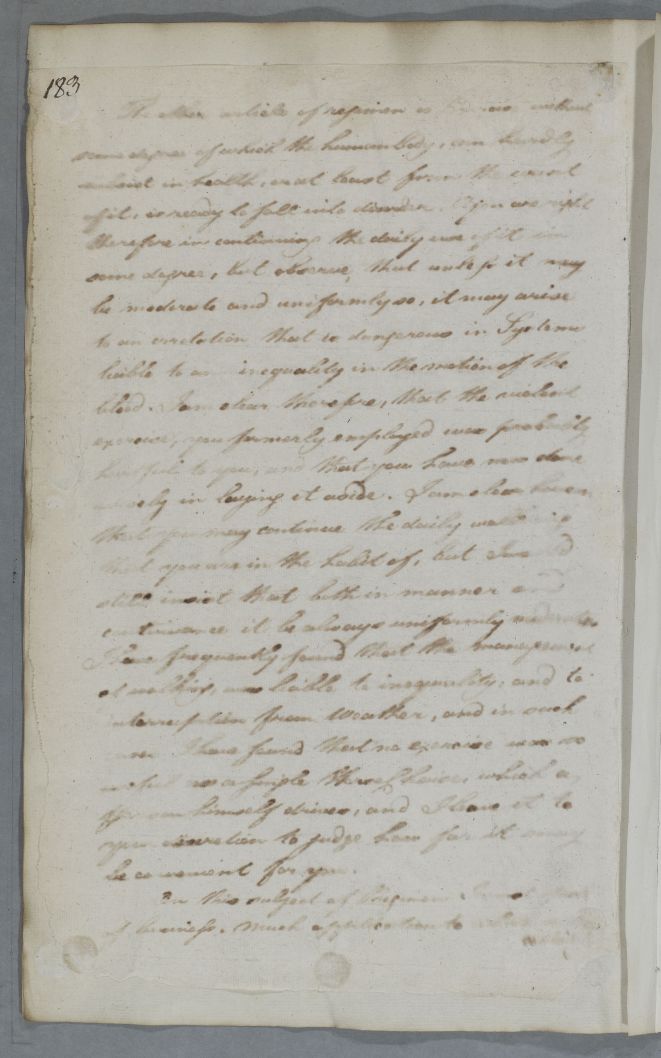 183
The other article of regimen is without
some degree of which the human body, can hardly
subsist in health, or at least from the want
of it, is ready to fall into disorder. You are right
therefore in continuing the daily use of it in
some degree, but observe, that unless it may
be moderate and uniformly so, it may arise
to an irritation that is dangerous in Systems
liable to an inequality in the motion off the
blood. I am clear therefore, that the violent
exercise, you formerly employed was probably
hurtfull to you, and that you have now done
wisely in laying it aside. I am clear
that you may continue the daily walking
that you are in the habit of, but I would
still insist that both in manner and
continuance it be always uniformly moderate.
I have frequently found that the management
of walking, was liable to inequality, and to
interruption from Weather, and in such
cases I have found that no exercise was so
usefull as a single horse chaise, which a
person himself drives, and I leave it to
your discretion to judge how far it may
be convenient for you.
On this subject of Regimen I must
of business. Much application to